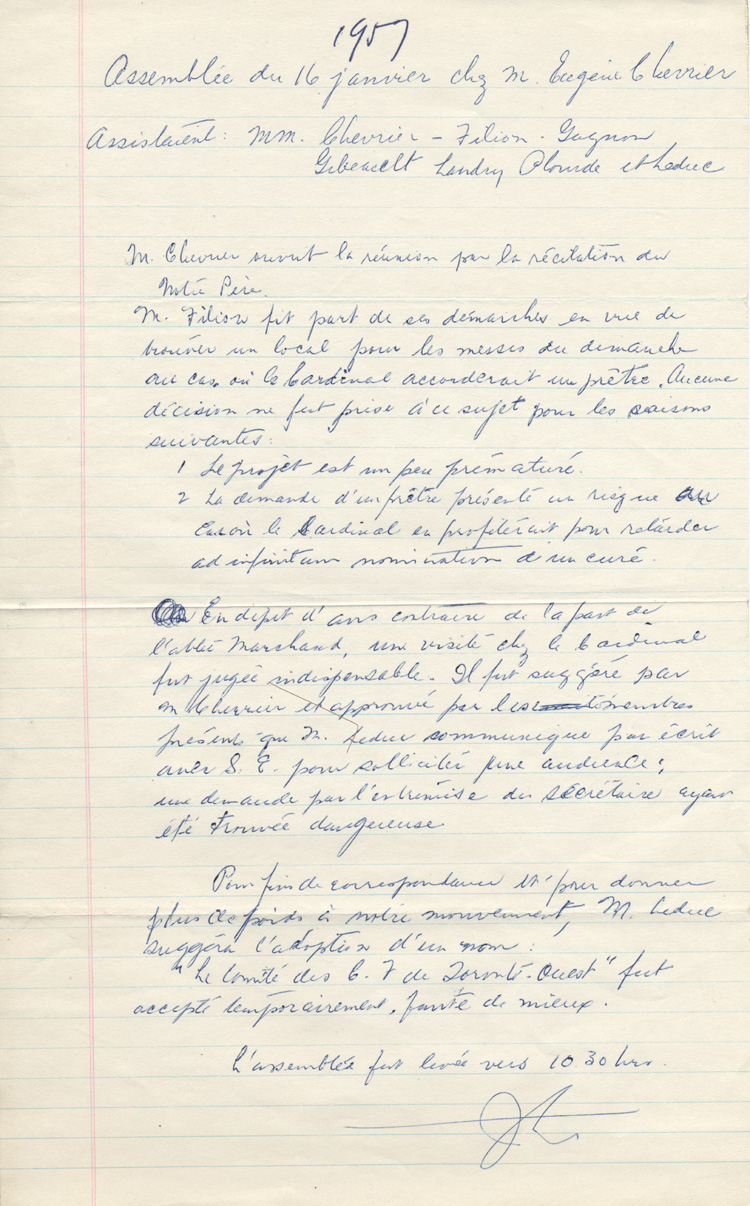 1957
Assemblée du 16 janvier chez M. Eugène Chevrier
Assistaient: MM. Chevrier - Filion - Gagnon
Gibeault Landry Plourde et Leduc
M. Chevrier ouvrit la réunion par la récitation du
Notre Père.
M. Filion fit part de ses démarches en vue de
trouver un local pour les messes du dimanche
au cas où le Cardinal accorderait un prêtre. Aucune
décision ne fut prise à ce sujet pour les raisons
suivantes:
1 Le projet est un peu prématuré.
2 La demande d'un prêtre présente un risque au
cas où le Cardinal en profiterait pour retarder
ad infinitum nomination d'un curé.
En dépit d'avis contraire de la part de
l'abbé Marchand, une visite chez le Cardinal
fut jugée indispensable. Il fut suggéré par
M Chevrier et approuvé par les membres
présents que M. Leduc communique par écrit
avec S. E. pour solliciter une audience;
une demande par l'entremise du secrétaire ayant
été trouvée dangereuse.
Pour fin de correspondance et pour donner
plus de poids à notre mouvement, M. Leduc
suggéra l'adoption d'un nom:
"Le Comité des C. F de Toronto-Ouest" fut
accepté temporairement, faute de mieux.
L'assemblée fut levée vers 10.30 hrs.